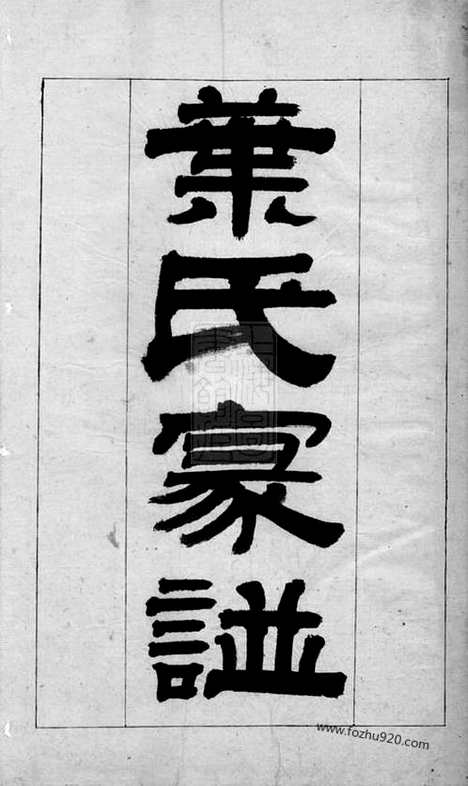 葉氏家譜
www.fozhu920.com